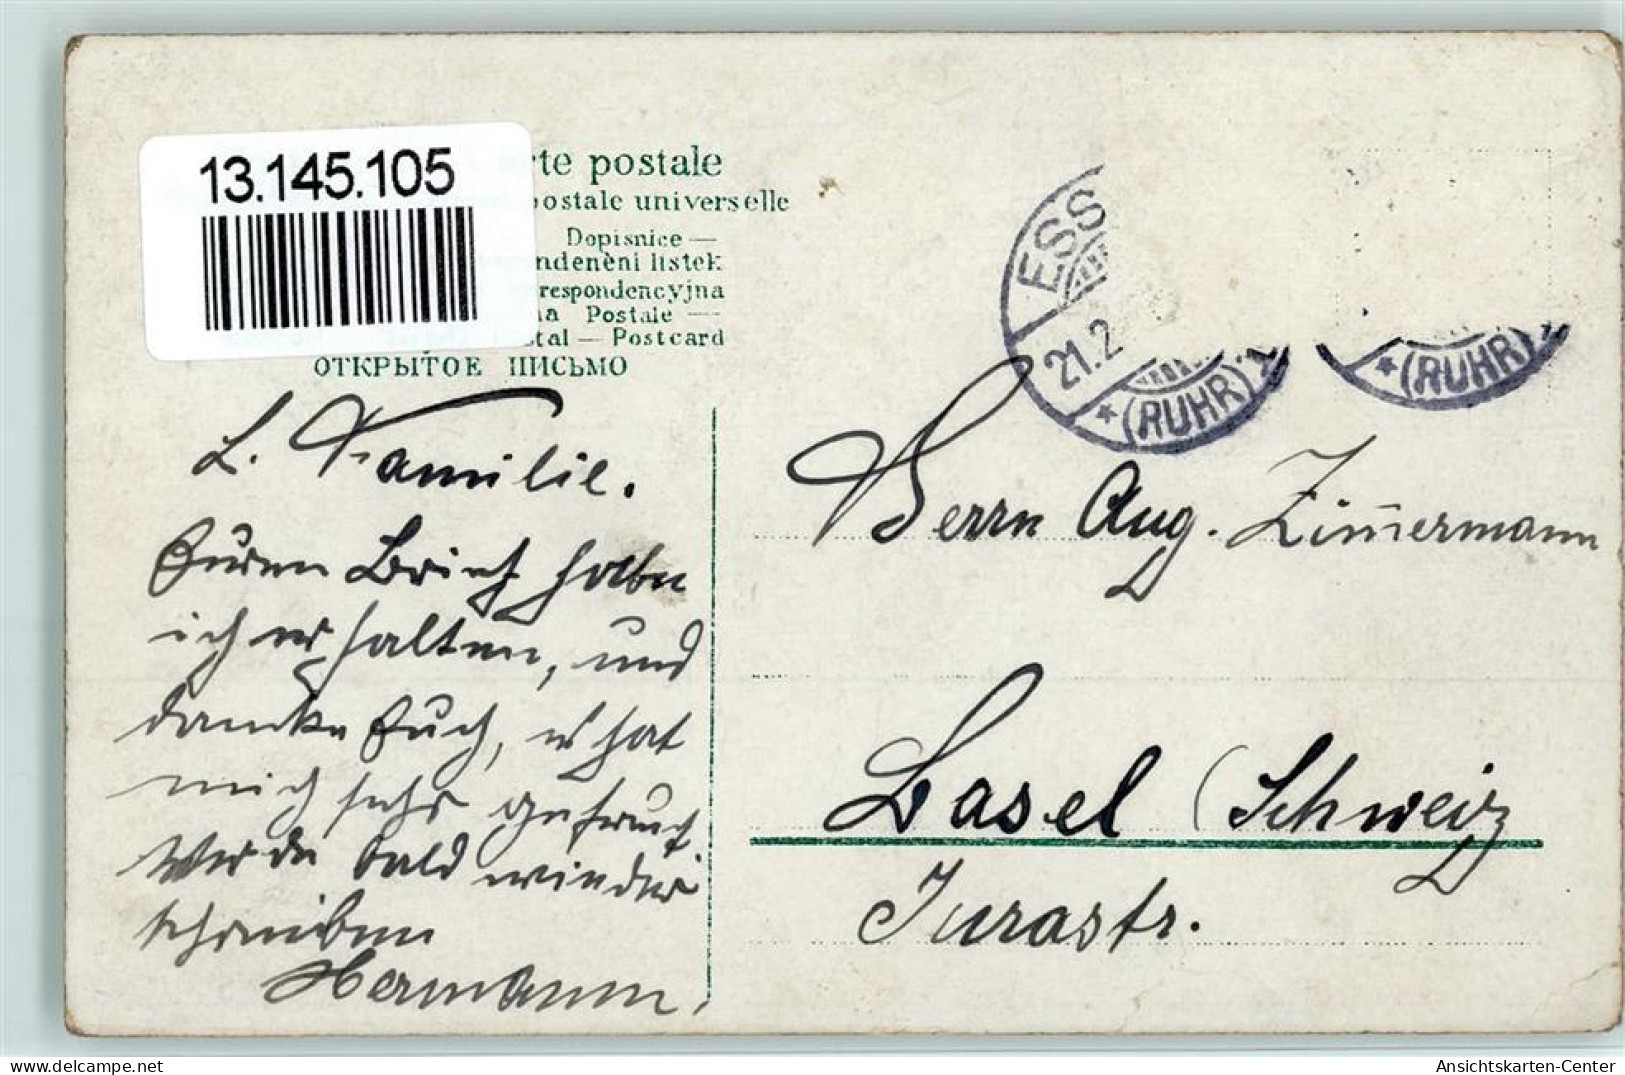 13.145.105
rte postale
postale universelle
Dopisnice —
ndenèni listek
respondencyjna
na Postale —
tal — Postcard
ОТКРЫТОЕ ПИСЬМО
ESS
21.2
* (RUHR)
* (RUHR)
L. Familie.
Euren Brief habe
ich erhalten, und
danke Euch, es hat
mich sehr gefreut
Werde bald wieder
schreiben
Hermann,
Herrn Aug. Zim̄ermann
Basel (Schweiz
Jurastr.
Ansichtskarten-Center